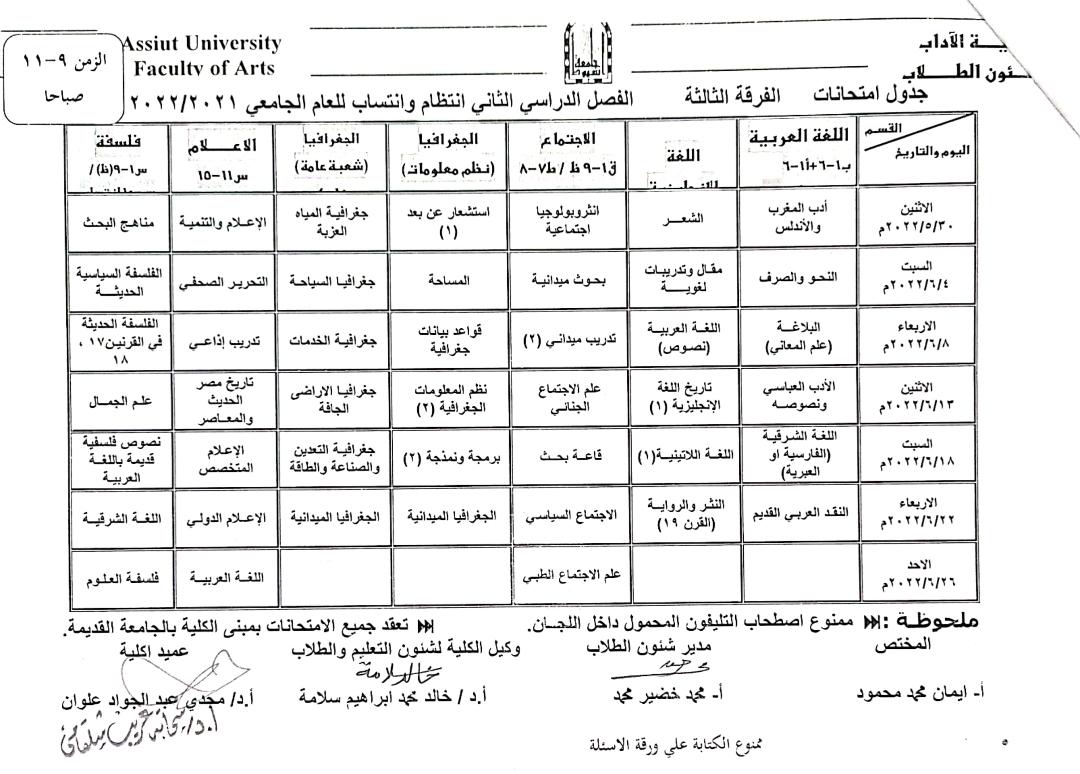 Assiut University
Faculty of Arts
الزمن ٩-١١
صباحا
جامعة
أسيوط
ـية الآداب
ـئون الطـــلاب
جدول امتحانات الفرقة الثالثة الفصل الدراسي الثاني انتظام وانتساب للعام الجامعي ٢٠٢٢/٢٠٢١
القسم
اليوم والتاريخ
اللغة العربية
ب١-٦+أ١-٦
اللغة
الاجتماع
ق١-٩ ظ / ط٧-٨
الجغرافيا
(نظم معلومات)
الجغرافيا
(شعبة عامة)
الاعــلام
س١١-١٥
فلسفة
س١-٩(ظ)/
الاثنين
٢٠٢٢/٥/٣٠م
أدب المغرب
والأندلس
الشعــر
انثروبولوجيا
اجتماعية
استشعار عن بعد
(١)
جغرافية المياه
العزبة
الإعلام والتنمية
مناهج البحث
السبت
٢٠٢٢/٦/٤م
النحو والصرف
مقال وتدريبات
لغويــة
بحوث ميدانية
المساحة
جغرافيا السياحة
التحرير الصحفي
الفلسفة السياسية
الحديثــة
الاربعاء
٢٠٢٢/٦/٨م
البلاغة
(علم المعاني)
اللغة العربية
(نصوص)
تدريب ميداني (٢)
قواعد بيانات
جغرافية
جغرافية الخدمات
تدريب إذاعي
الفلسفة الحديثة
في القرنين١٧ ،
١٨
الاثنين
٢٠٢٢/٦/١٣م
الأدب العباسي
ونصوصه
تاريخ اللغة
الإنجليزية (١)
علم الاجتماع
الجنائي
نظم المعلومات
الجغرافية (٢)
جغرافيا الاراضى
الجافة
تاريخ مصر
الحديث
والمعاصر
علم الجمال
السبت
٢٠٢٢/٦/١٨م
اللغة الشرقية
(الفارسية او
العبرية)
اللغة اللاتينية(١)
قاعة بحث
برمجة ونمذجة (٢)
جغرافية التعدين
والصناعة والطاقة
الإعلام
المتخصص
نصوص فلسفية
قديمة باللغة
العربية
الاربعاء
٢٠٢٢/٦/٢٢م
النقد العربي القديم
النثر والرواية
(القرن ١٩)
الاجتماع السياسي
الجغرافيا الميدانية
الجغرافيا الميدانية
الإعلام الدولي
اللغة الشرقية
الاحد
٢٠٢٢/٦/٢٦م
علم الاجتماع الطبي
اللغة العربية
فلسفة العلوم
ملحوظة : ممنوع اصطحاب التليفون المحمول داخل اللجــان. تعقد جميع الامتحانات بمبنى الكلية بالجامعة القديمة.
المختص مدير شئون الطلاب وكيل الكلية لشئون التعليم والطلاب عميد اكلية
خالد سلامة
أ- ايمان محمد محمود أ- محمد خضير محمد أ.د / خالد محمد ابراهيم سلامة أ.د/ مجدي عبد الجواد علوان
ممنوع الكتابة علي ورقة الاسئلة